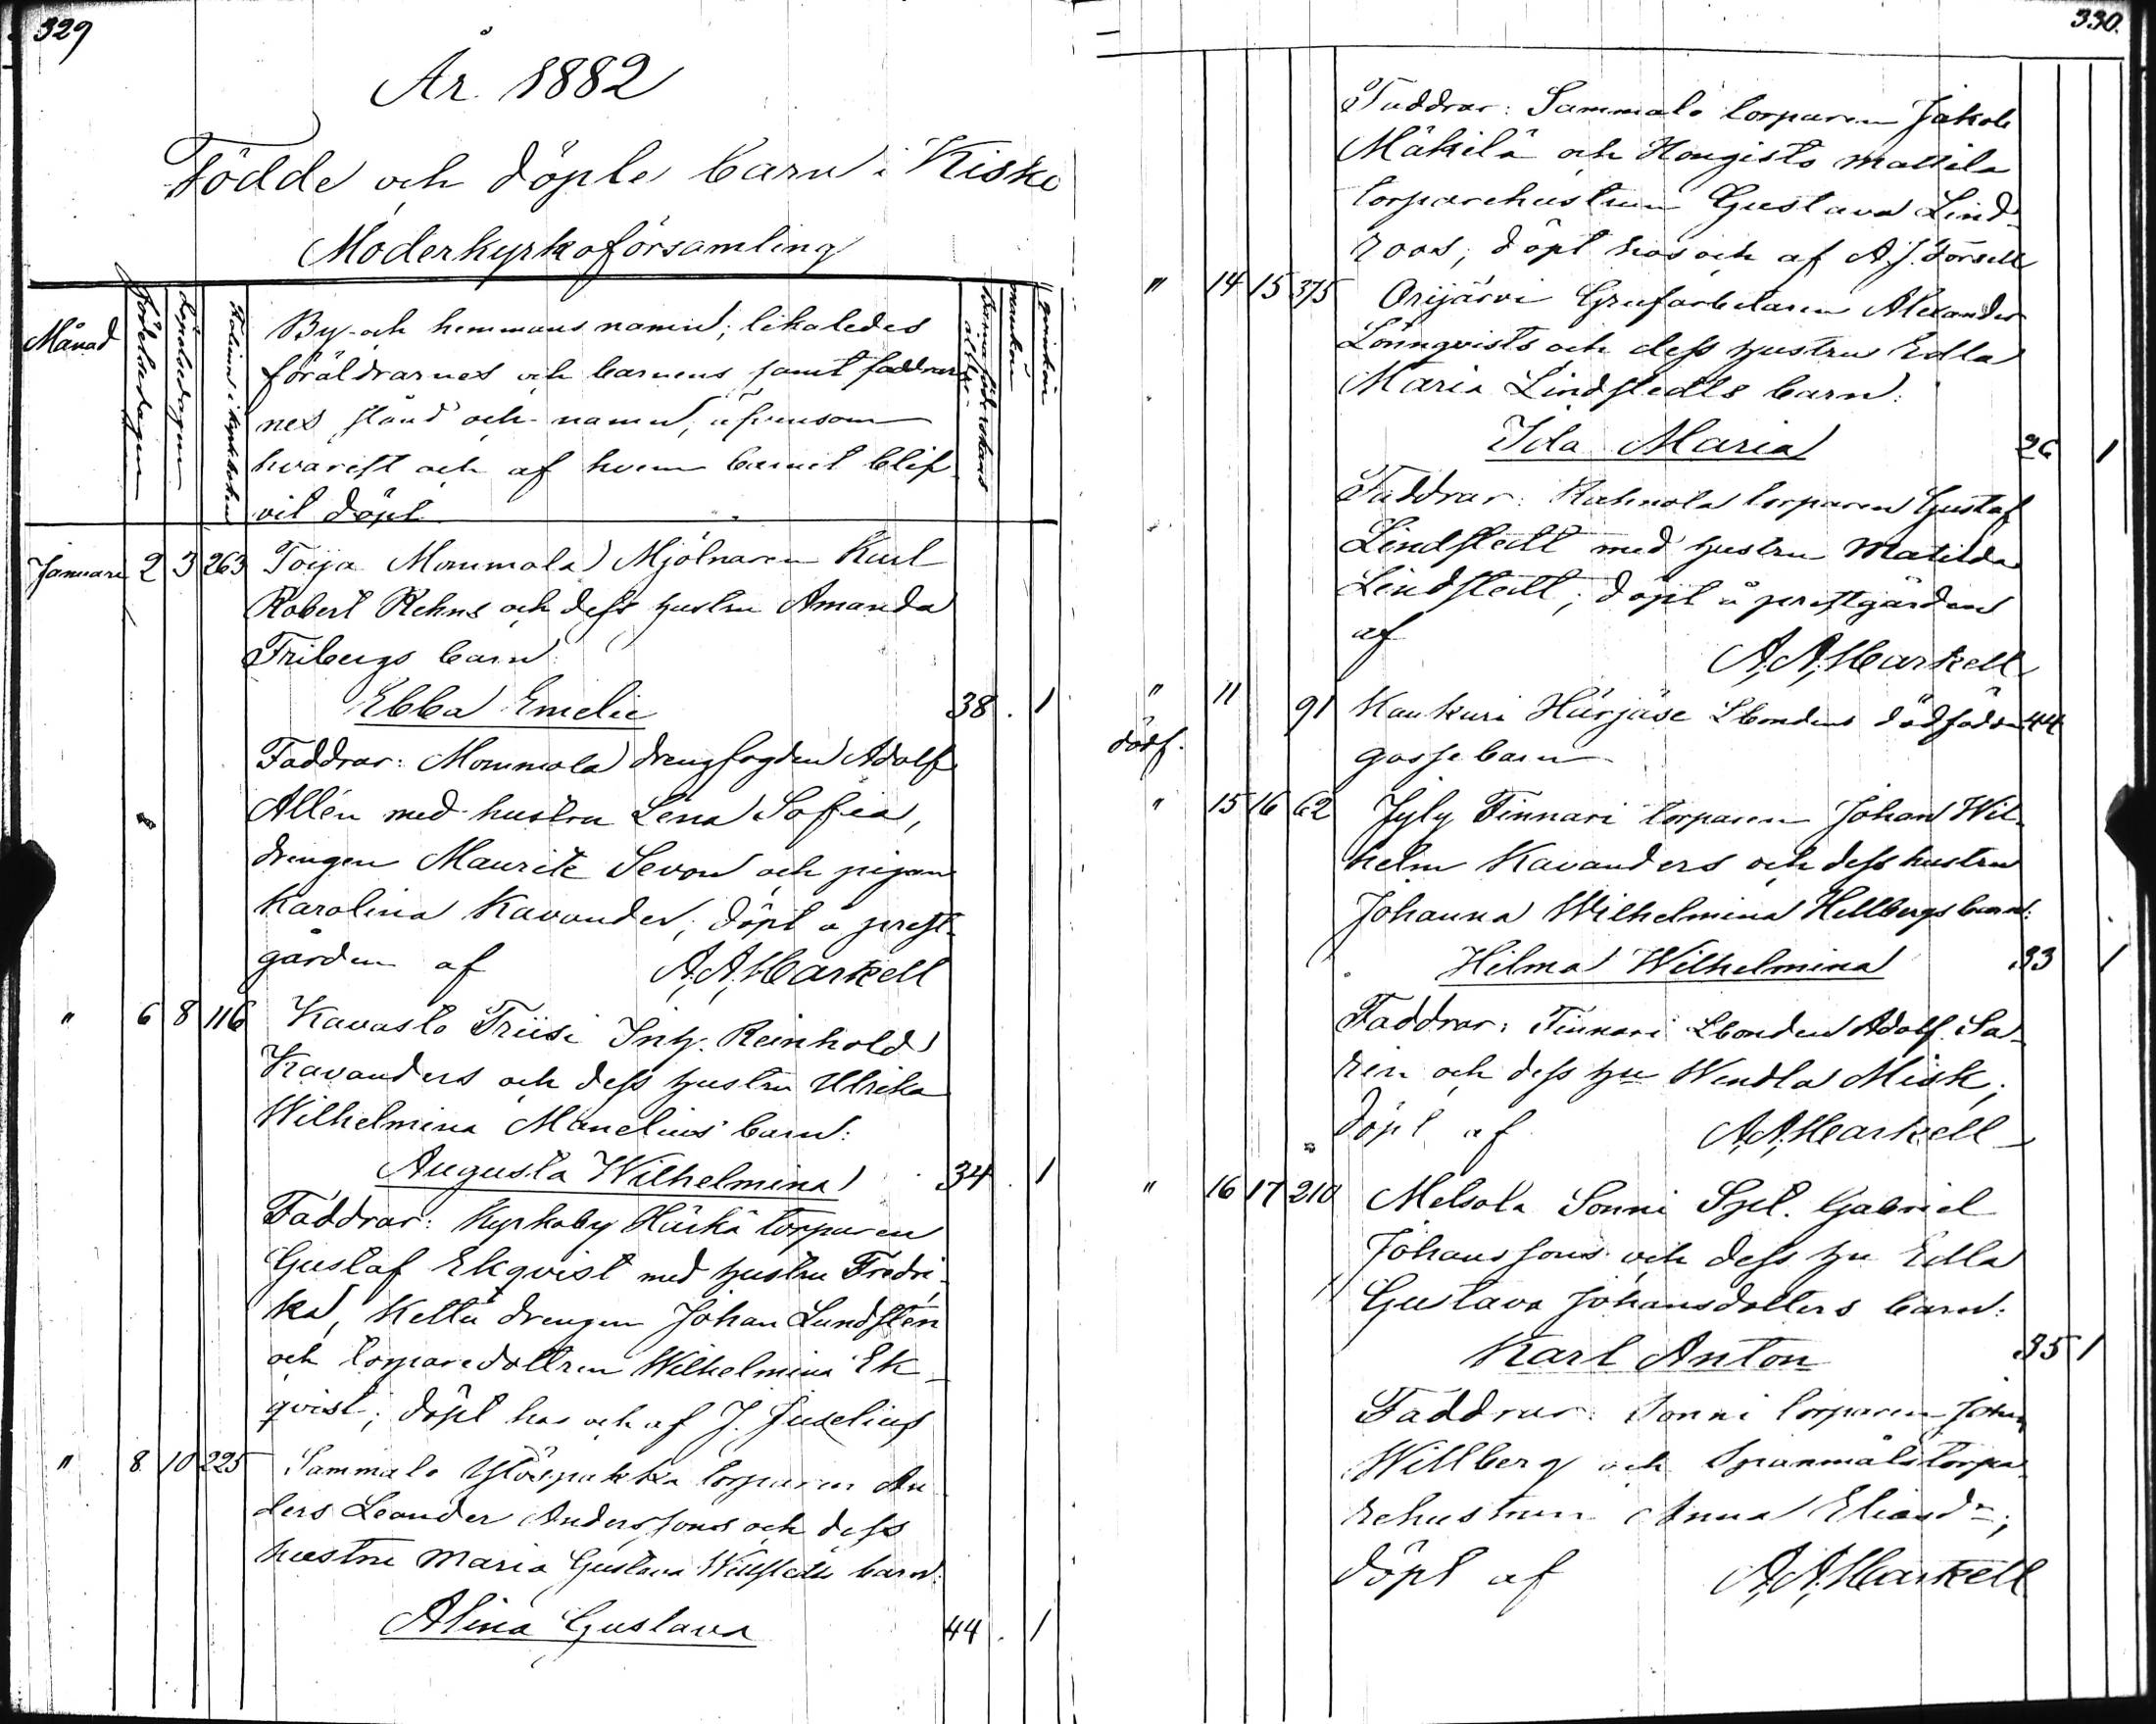 329
År 1882
Födde och döpte barn i Kisko
Moderkyrkoförsamling
Månad
Födelsedagen
Döpelsedagen
Folium i kyrkoboken
By- och hemmans namn; likaledes
föräldrarnes och barnens samt faddrar-
nes stånd och namn, äfvensom
hvarest och af hvem barnet blif-
vit döpt
Barnaföderskans ålder
mankön
qvinkön
Januari 2 3 263 Toija Mommola Mjölnaren Karl
Robert Rehns och dess hustru Amanda
Fribergs barn:
Ebba Emelie 38. 1
Faddrar: Mommola drengfogden Adolf
Allén med hustru Lena Sofia,
drengen Maurits Sevon och pigan
Karolina Kavander; döpt å prest-
gården af A. A. Markell
" 6 8 116 Kavasto Friisi Inh. Reinhold
Kavanders och dess hustru Ulrika
Wilhelmina Manelius barn:
Augusta Wilhelmina 34 1
Faddrar: Kyrkoby Härkä torparen
Gustaf Ekqvist med hustru Fredri-
ka, Kettu drengen Johan Lundstén
och torparedottren Wilhelmina Ek-
qvist; döpt hos och af J. Juselius
" 8 10 225 Sammalo Ylöspakka torparen An-
ders Leander Anderssons och dess
hustru Maria Gustava Willstedts barn:
Alina Gustava 44. 1
330.
Faddrar: Sammalo torparen Jakob
Mäkilä och Hongisto Mattila
torparehustrun Gustava Lind-
roos; döpt hos och af A. J. Forsell
" 14 15 375 Orijärvi Grufarbetaren Alexander
Lönnqvists och dess hustru Edla
Maria Lindstedts barn:
Ida Maria 26 1
Faddrar: Hahnola torparen Gustaf
Lindstedt med hustru Matilda
Lindstedt; döpt å prestgården
af A. A. Markell
" 11 91 Kaukuri Härjäse Lbondens dödfödda 44
dödf. gossebarn
" 15 16 62 Jyly Finnari torparen Johan Wil-
helm Kavanders och dess hustru
Johanna Wilhelmina Hellbergs barn:
Hilma Wilhelmina 33 1
Faddrar: Finnari Lbonden Adolf Sa-
rin och dess hu Wendla Misk;
döpt af A. A. Markell
" 16 17 210 Melsola Sonni Spl. Gabriel
Johanssons och dess hu Edla
Gustava Johansdotters barn:
Karl Anton 35 1
Faddrar: Sonni torparen Johan
Willberg och Spanmåls torpa-
rehustrun Anna Eliasdr;
döpt af A. A. Markell